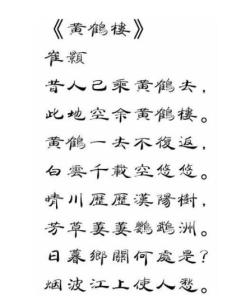 《黄鶴樓》
崔顥
昔人已乘黄鶴去，
此地空余黄鶴樓。
黄鶴一去不復返，
白雲千載空悠悠。
晴川歷歷漢陽樹，
芳草萋萋鸚鵡洲。
日暮鄉關何處是？
烟波江上使人愁。